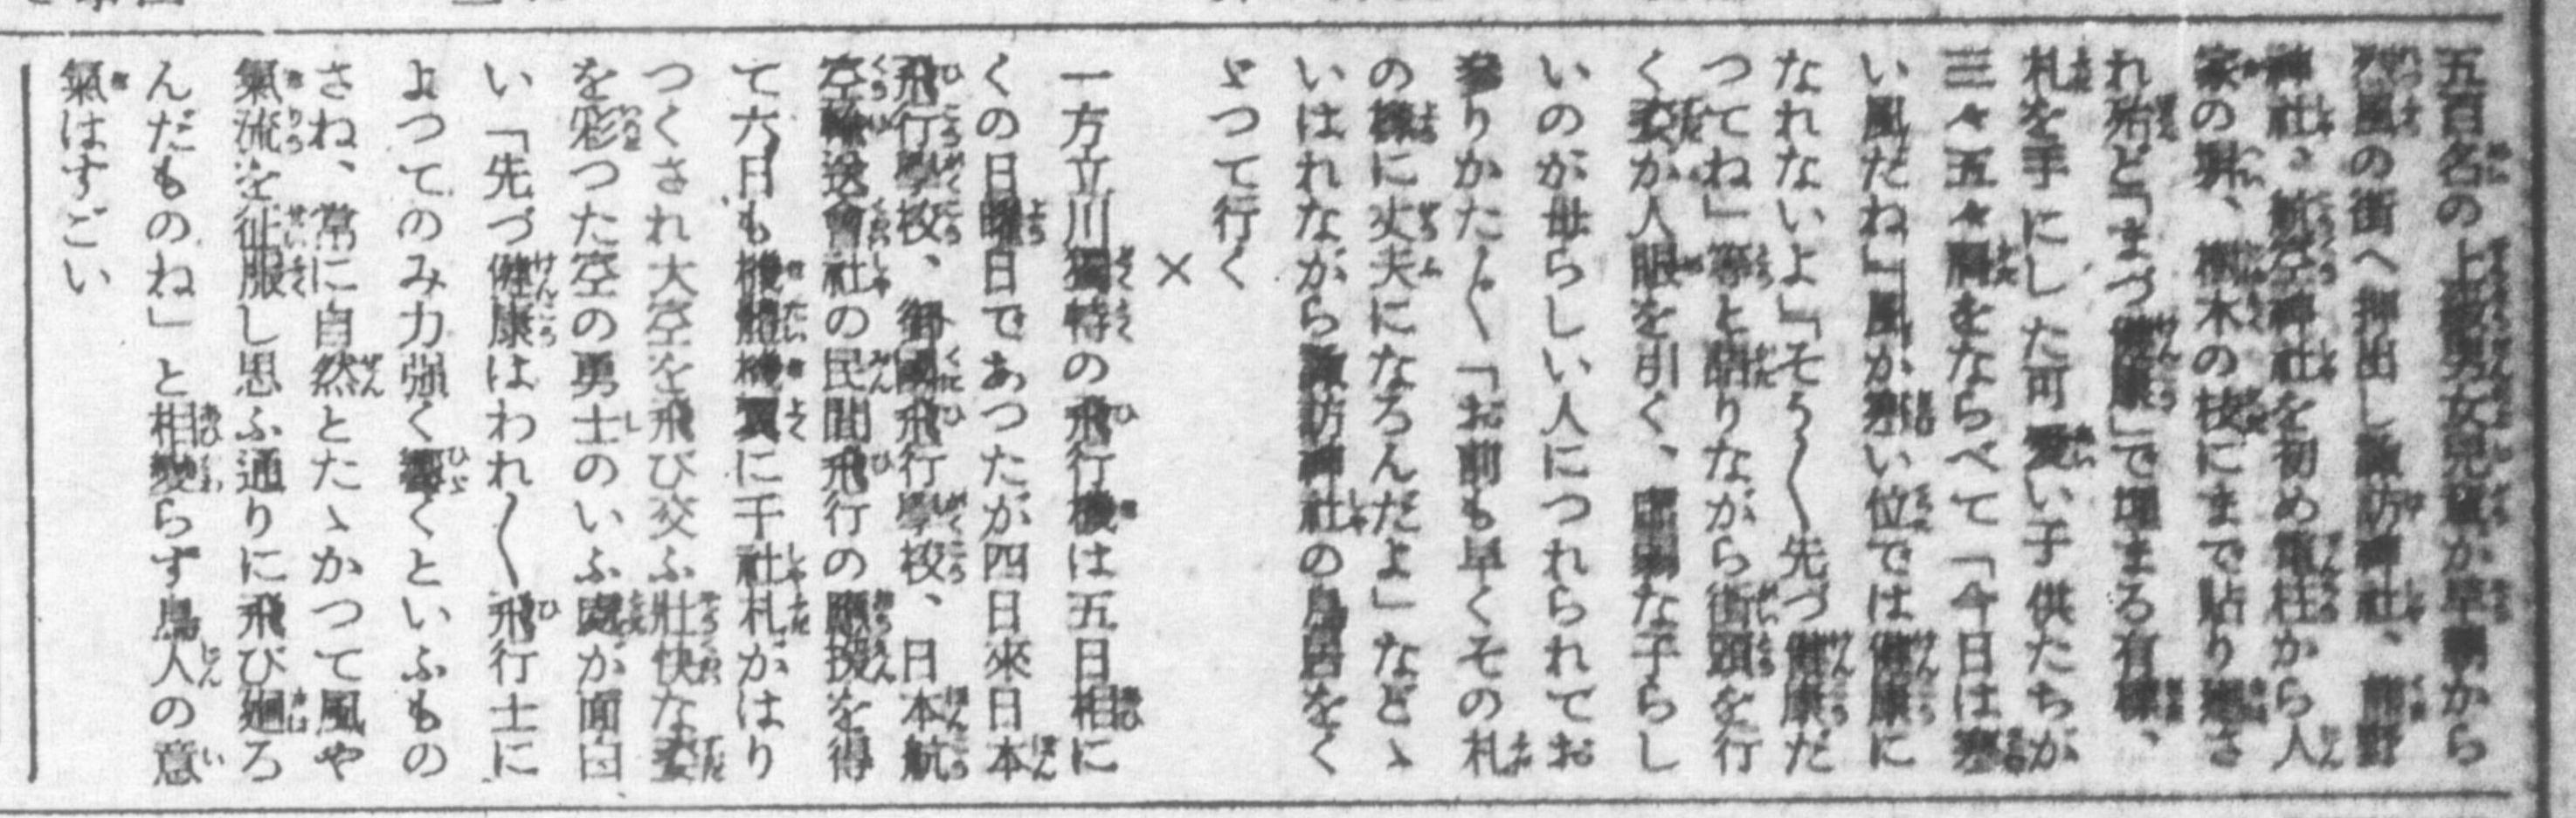 五百名の上級男女児童が早朝から
烈風の街へ押出し諏訪神社、熊野
神社、航空神社を初め電柱から人
家の塀、樹木の枝にまで貼り廻さ
れ殆ど「まづ健康」で埋まる有様、
札を手にした可愛い子供たちが
三々五々肩をならべて「今日は寒
い風だね」「風が寒い位では健康に
なれないよ」「そう〱先づ健康だ
つてね」等と語りながら街頭を行
く姿が人眼を引く、虚弱な子らし
いのが母らしい人につれられてお
參りかた〲「お前も早くその札
の樣に丈夫になろんだよ」などゝ
いはれながら諏訪神社の鳥居をく
ゞつて行く
×
一方立川獨特の飛行機は五日相に
くの日曜日であつたが四日來日本
飛行學校、御國飛行學校、日本航
空輸送會社の民間飛行の應援を得
て六日も機體機翼に千社札がはり
つくされ大空を飛び交ふ壯快な姿
を彩つた空の勇士のいふ處が面白
い「先づ健康はわれ〱飛行士に
よつてのみ力強く響くといふもの
さね、常に自然とたゝかつて風や
氣流を征服し思ふ通りに飛び廻ろ
んだものね」と相變らず鳥人の意
氣はすごい